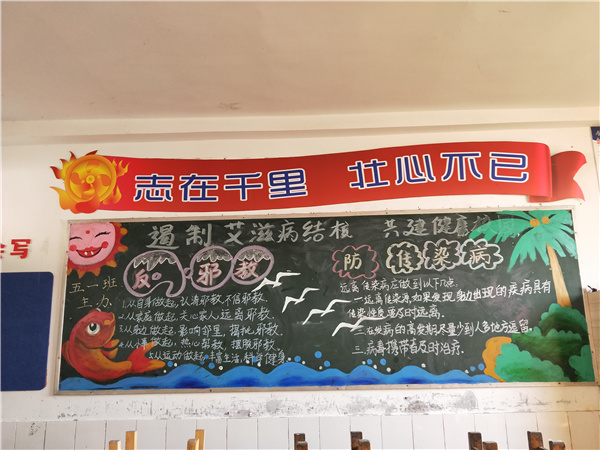 志在千里 壮心不已
会写
遏制艾滋病结核 共建健康校园
五.一班
主.办.
反邪教
1.从自身做起,认清邪教不信邪教.
2.从家庭做起,关心家人远离邪教.
3.从身边做起,影响邻里,揭批邪教.
4.从小事做起,热心帮教,摆脱邪教.
5.从运动做起,丰富生活,科学健身
防传染病
远离传染病应做到以下几点.
一.远离传染源.如果发现身边出现的疾病具有
传染性质要及时远离.
二.在疾病的高发期尽量少到人多地方逗留.
三.病毒携带者及时治疗.